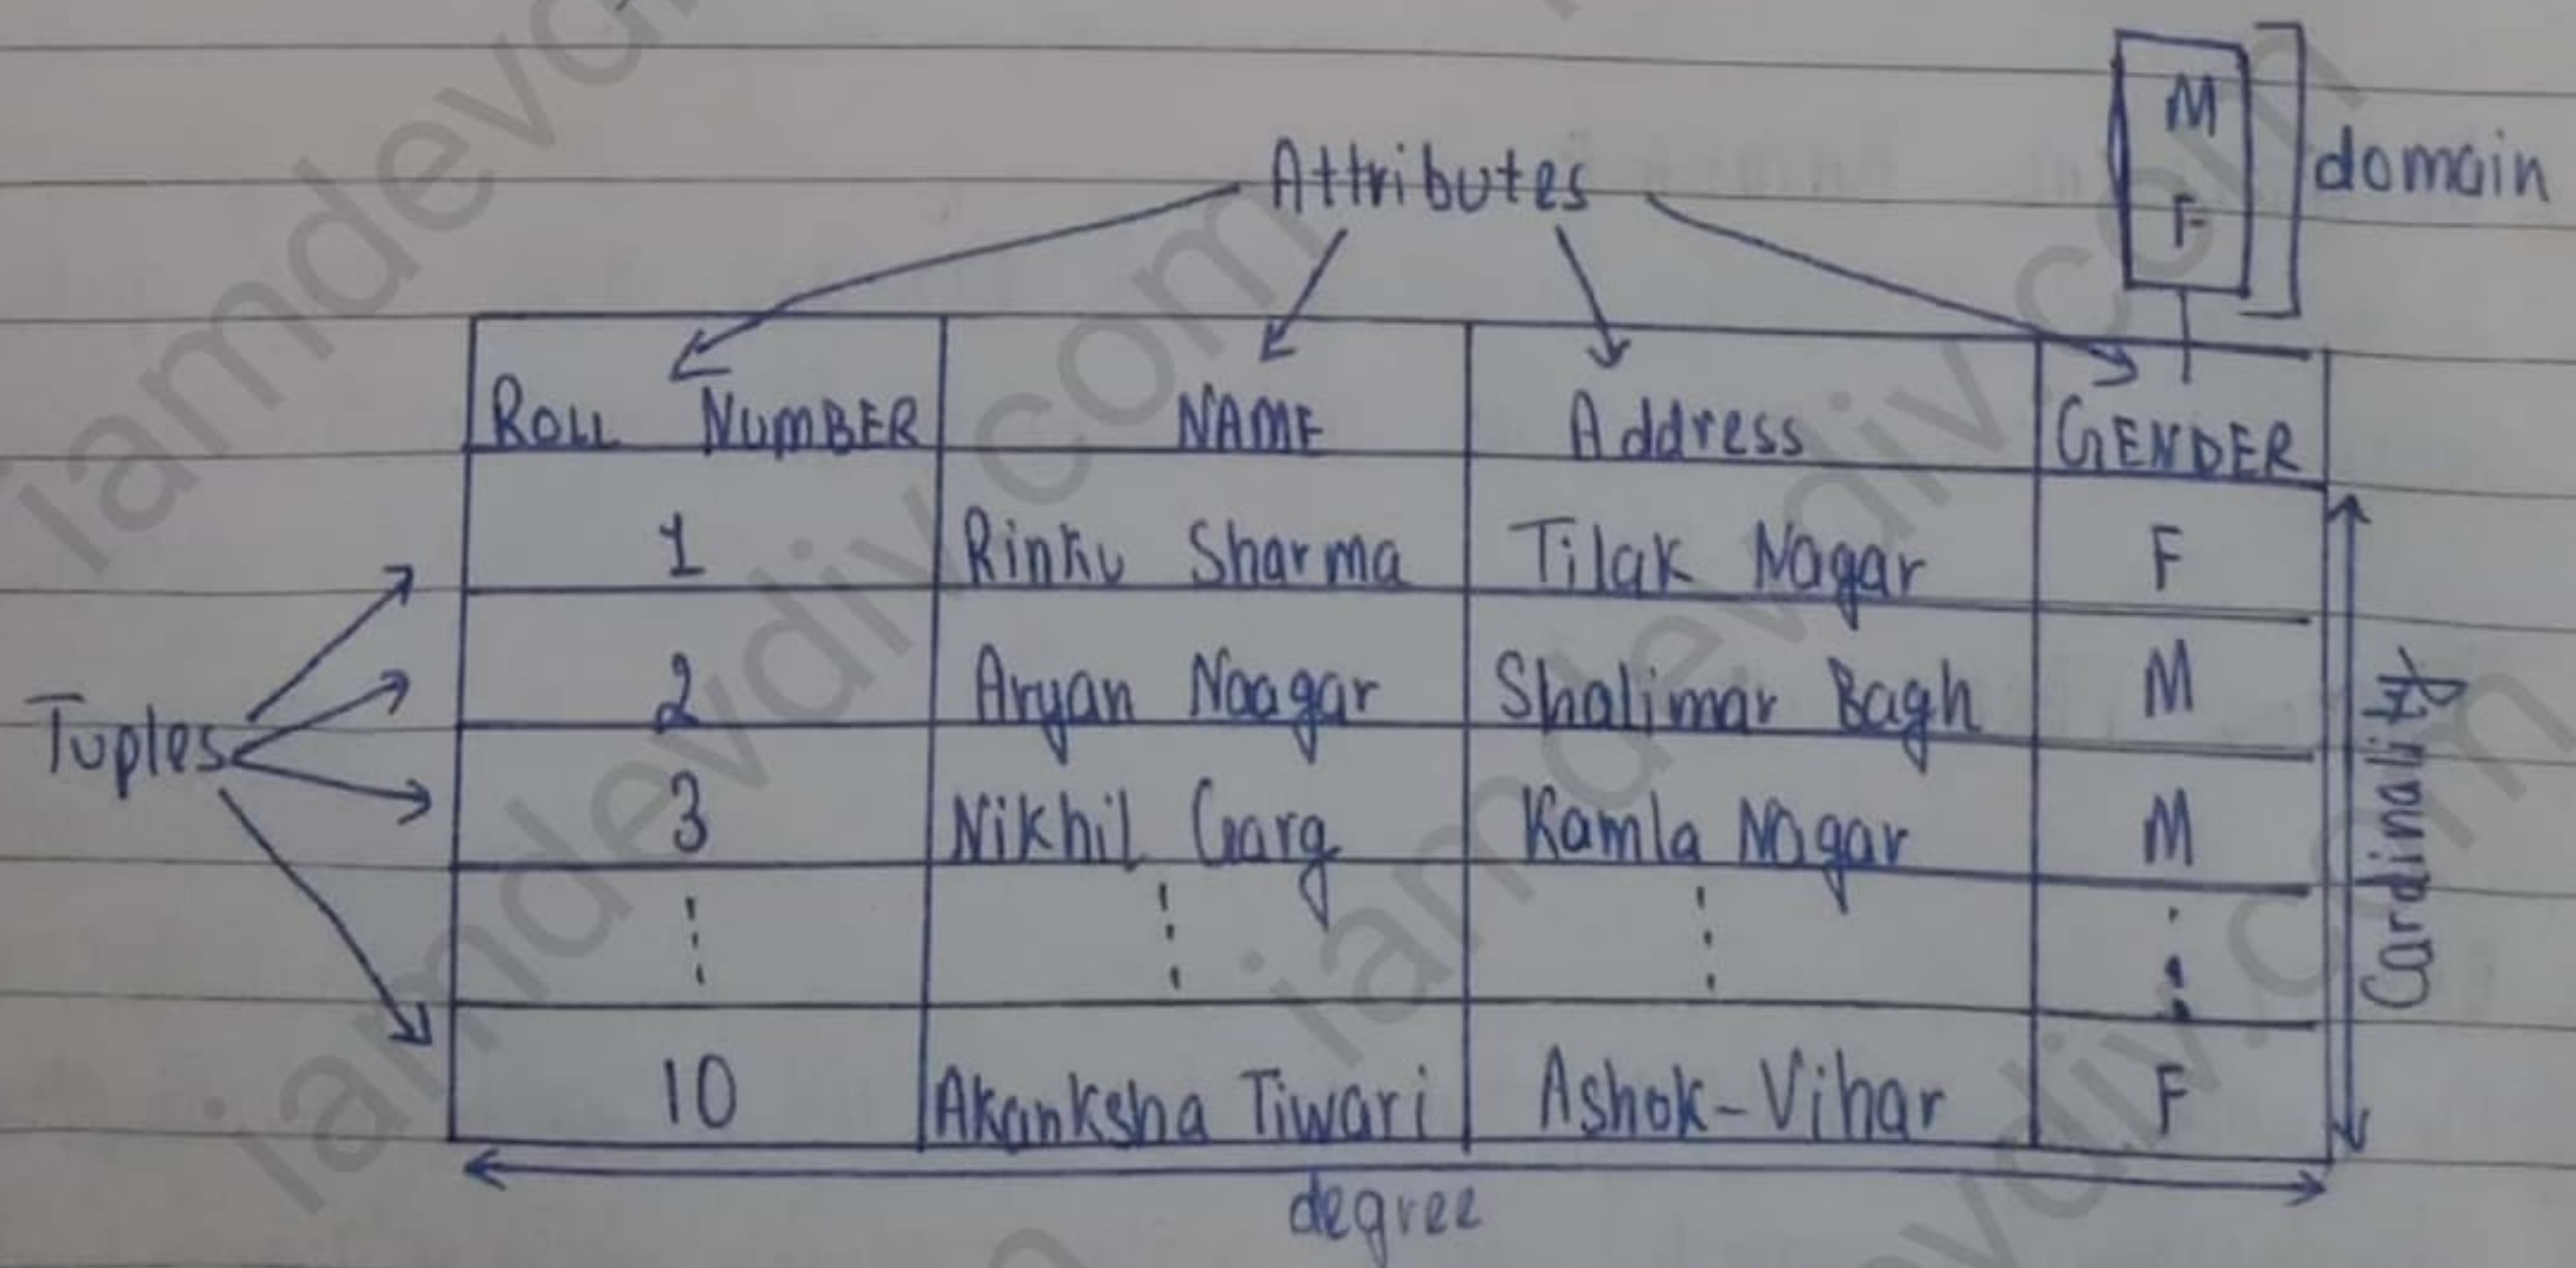 M
F
domain
Attributes
ROLL NUMBER NAME Address GENDER
1 Rinku Sharma Tilak Nagar F
2 Aryan Naagar Shalimar Bagh M
3 Nikhil Garg Kamla Nagar M
10 Akanksha Tiwari Ashok-Vihar F
Tuples
Cardinality
degree
iamdevdiv.com
iamdevdiv.com